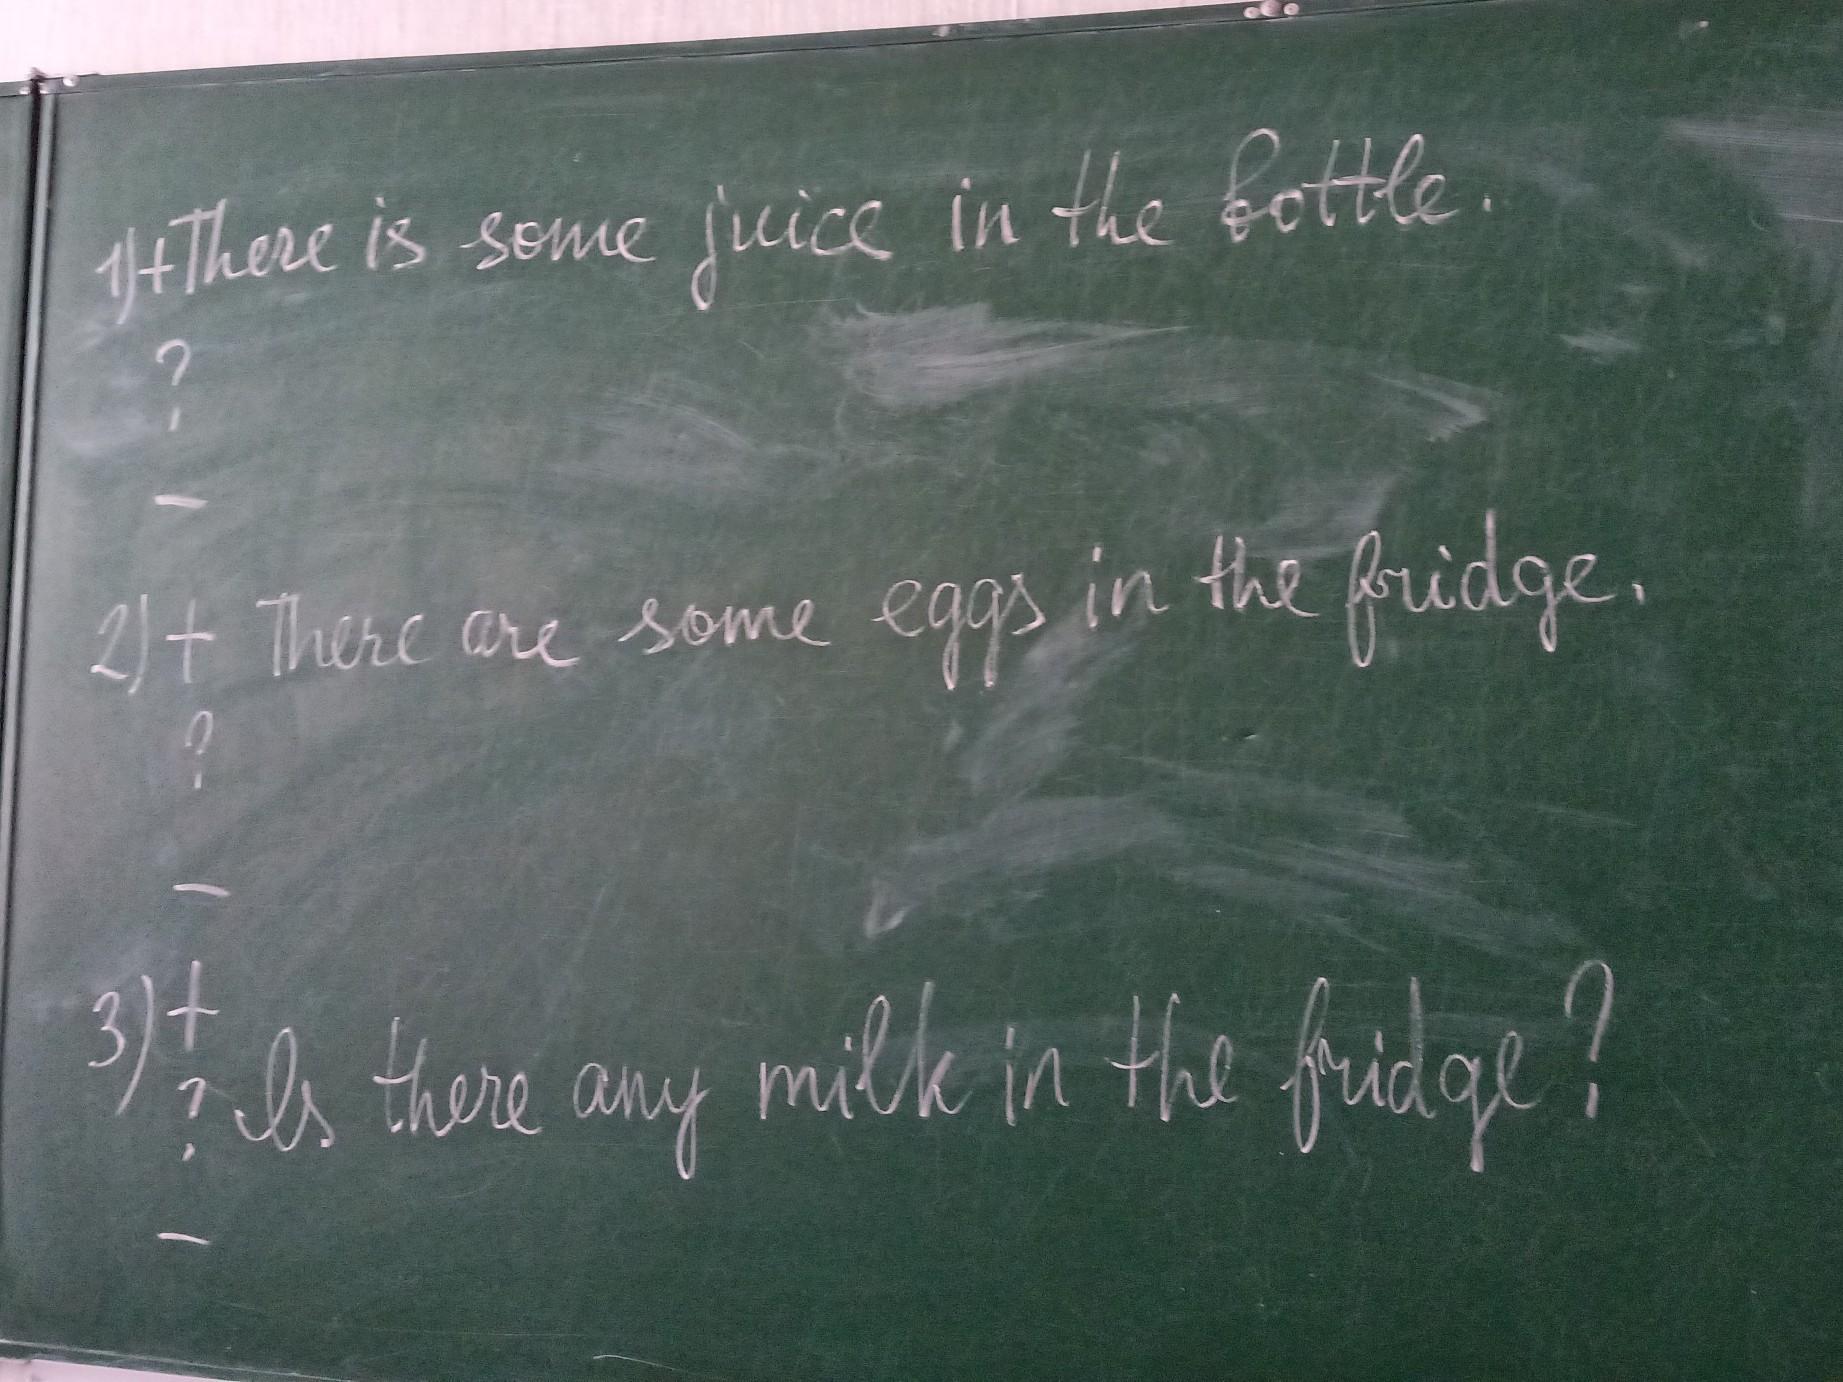 1)+There is some juice in the bottle.
?
–
2)+ There are some eggs in the fridge.
?
–
3)+
? Is there any milk in the fridge?
–